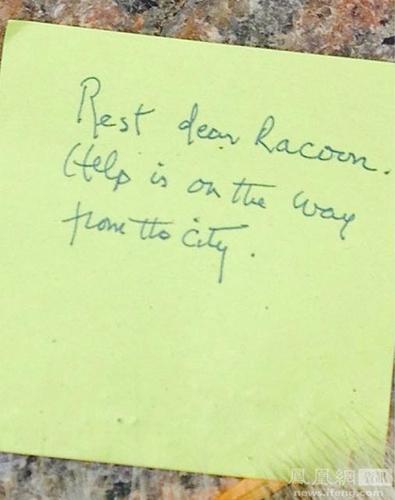 Rest dear Racoon.
Help is on the way
from the city.
鳳凰網
news.ifeng.com